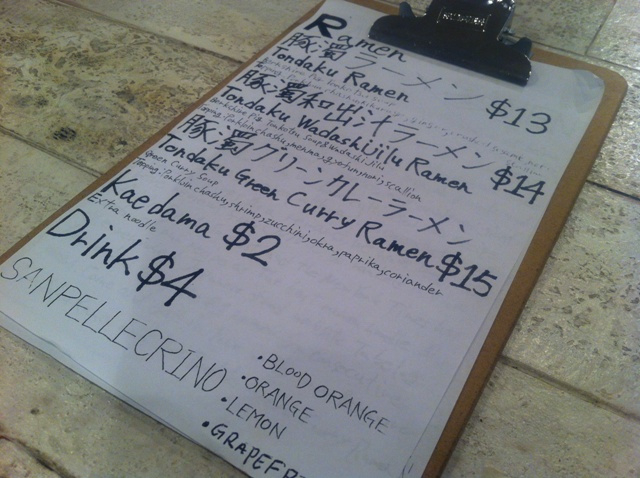 Ramen
豚濁ラーメン $13
Tondaku Ramen
豚濁和出汁ラーメン $14
Tondaku WadashiJilu Ramen
scallion
豚濁グリーンカレーラーメン
Tondaku Green Curry Ramen $15
Green Curry Soup
chashu, shrimp, zucchini, okra, paprika, coriander
Kaedama $2
Extra noodle
Drink $4
SANPELLECRINO
• BLOOD ORANGE
• ORANGE
• LEMON